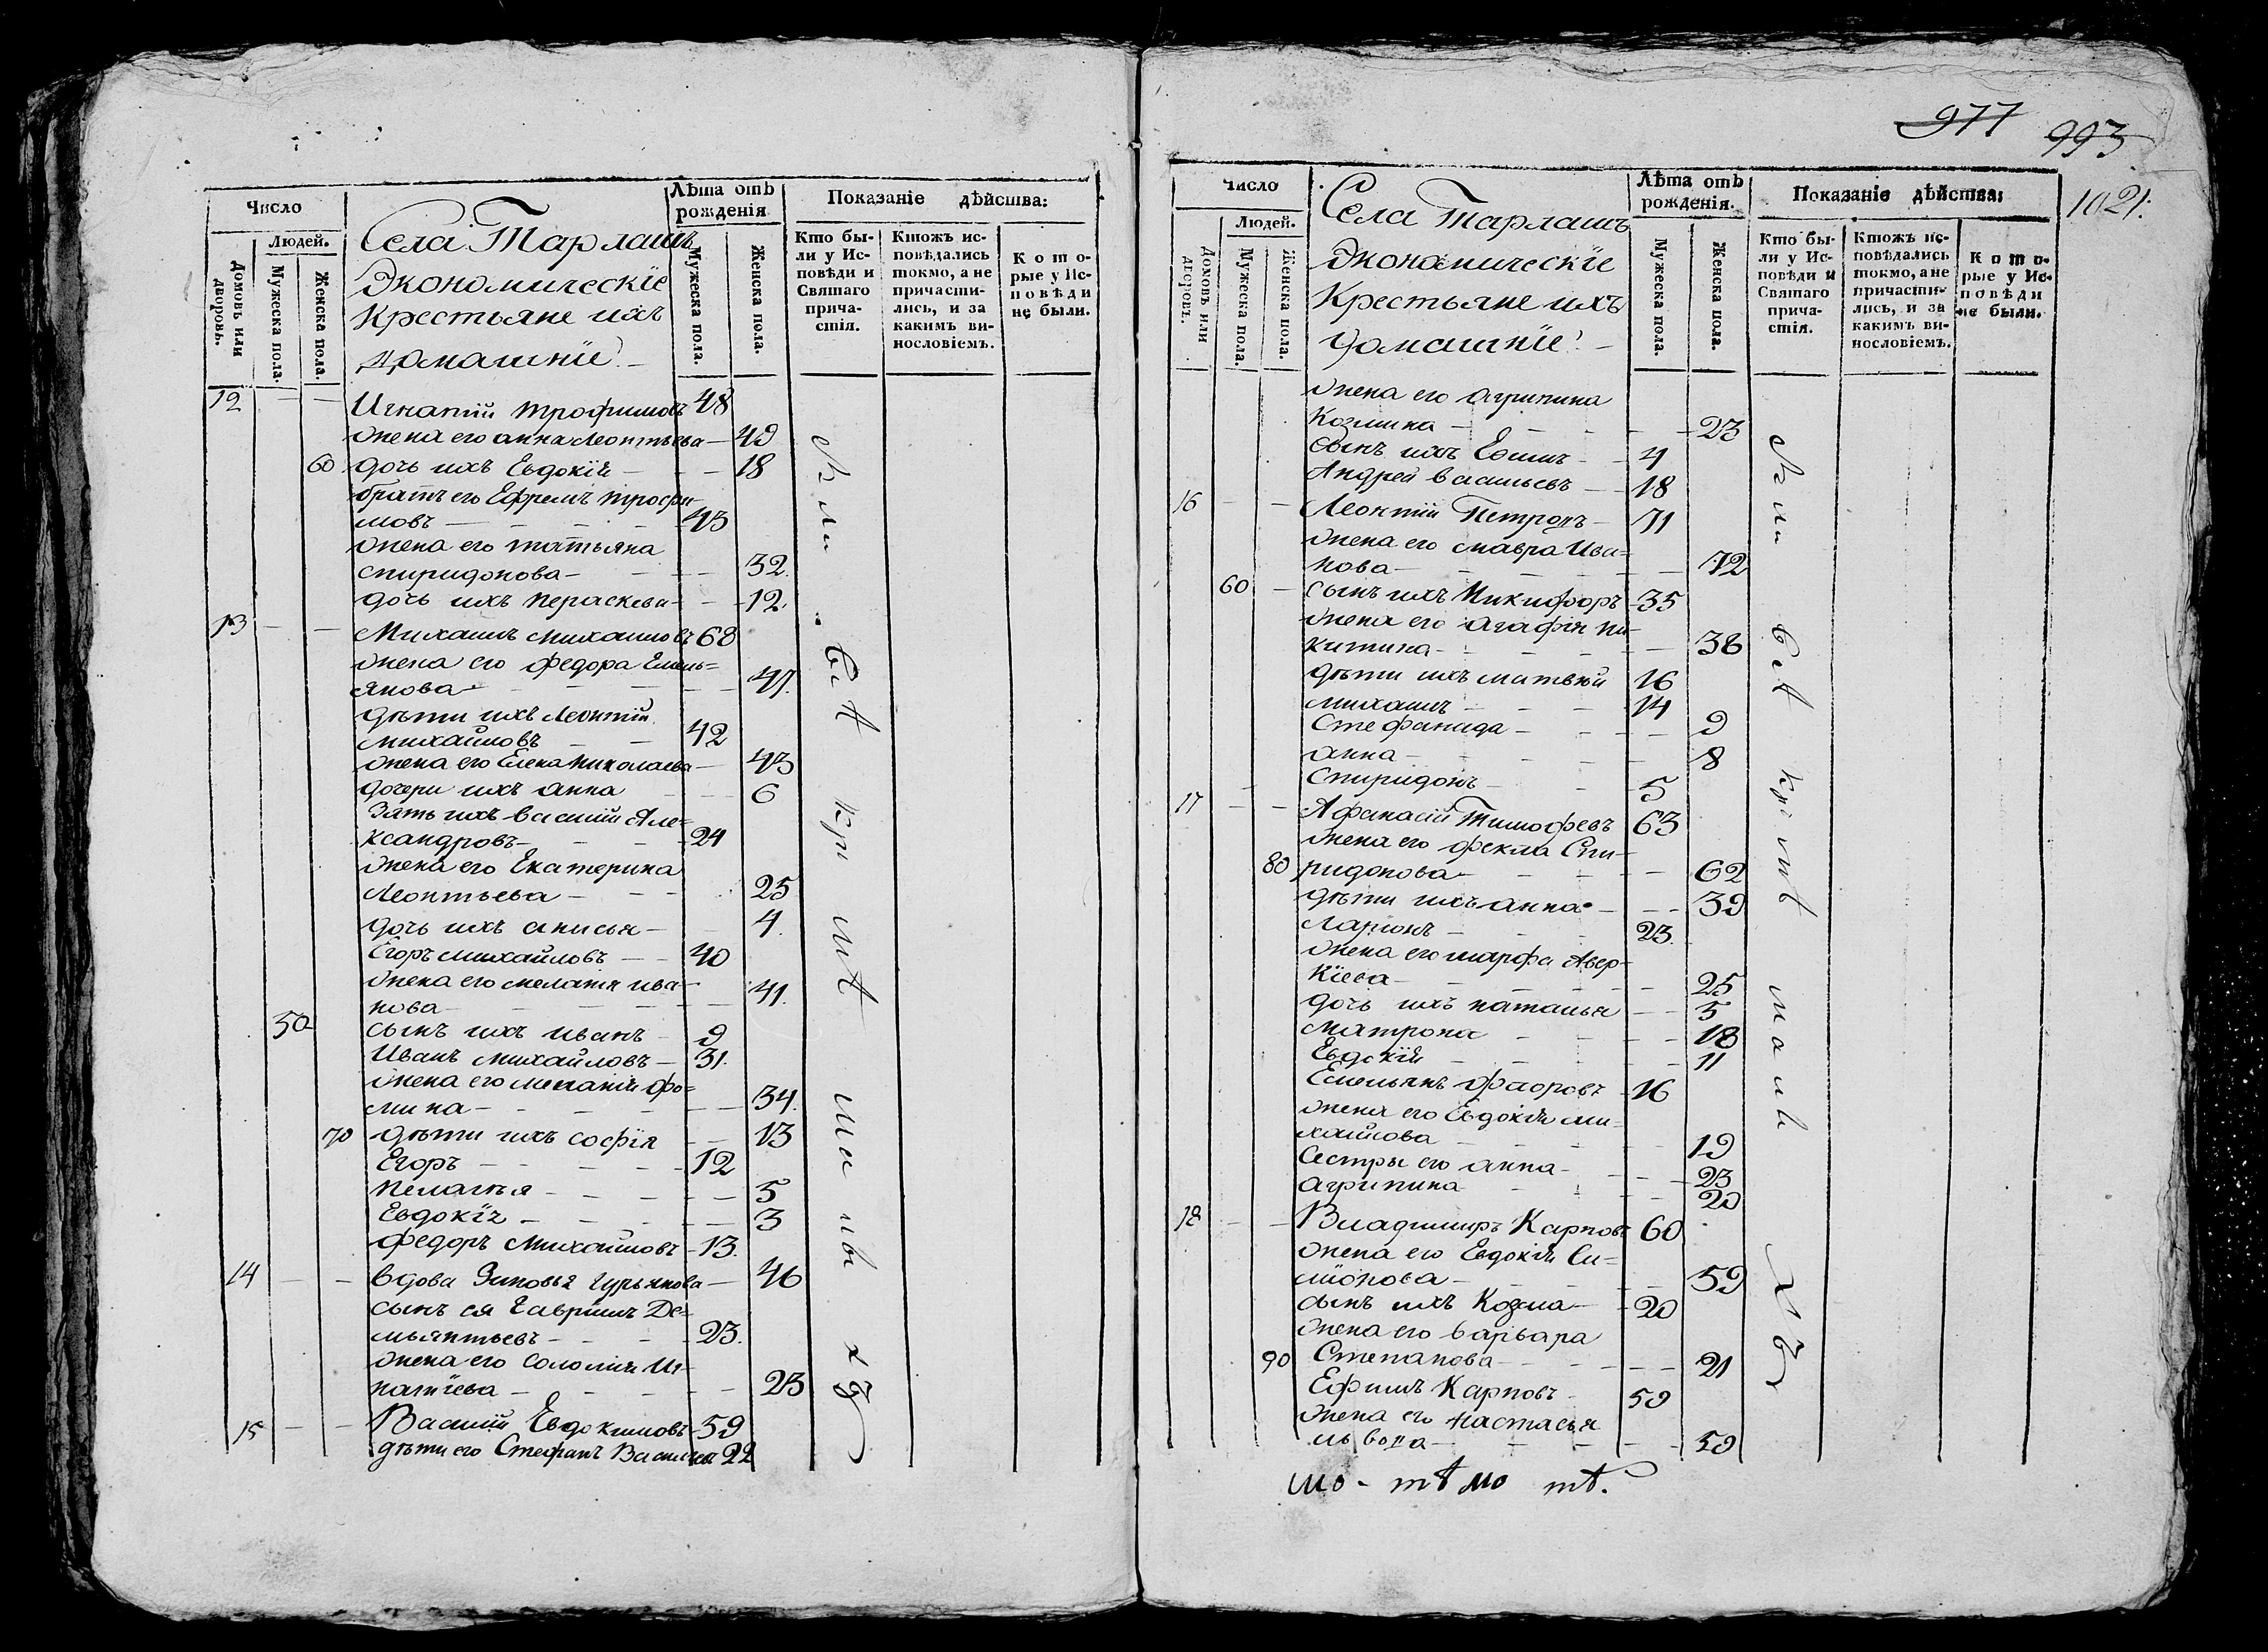 Число
Людей.
Домовъ или дворовъ.
Мужеска пола.
Женска пола.
Села Тарлашъ
Экономическіе
Крестьяне ихъ
домашніе
Лѣта отъ рожденія
Мужеска пола.
Женска пола.
Показаніе дѣйства:
Кто бы-
ли у Ис-
повѣди и
Святаго
прича-
стія.
Ктожъ ис-
повѣдались
токмо, а не
причасти-
лись, и за
какимъ ви-
нословіемъ.
Кото-
рые у Ис-
повѣди
не были.
12 Игнатій трофимовъ 48
жена его анна Леонтьева 49
60 дочь ихъ Евдокія 18
братъ его Ефремъ трофи-
мовъ 43
жена его татьяна
спиридонова 32
дочь ихъ параскева 12
13 Михаилъ михаиловъ 68
жена его федора Емель=
янова 47
дѣти ихъ Леонтій
михайловъ 42
жена его Елена николаева 43
дочери ихъ анна 6
Зять ихъ василій Але=
ксандровъ 24
жена его Екатерина
Леонтьева 25
дочь ихъ анисья 4
Егоръ михайловъ 40
жена его мелапія ива-
нова 41
50 сынъ ихъ иванъ 9
Иванъ михайловъ 31
жена его меланія фо=
мина 34
70 дѣти ихъ софія 13
Егоръ 12
пелагья 5
Евдокія 3
федоръ михайловъ 13
14 вдова Зиновья гурьянова 46
сынъ ея гаврилъ Де=
мьянтьевъ 23
жена его соломія Иг-
натіева 23
15 Василій Евдокимовъ 59
дѣти его Стефанъ Васильевъ 22
977
993
1021
Число
Людей.
Домовъ или дворовъ.
Мужеска пола.
Женска пола.
Села Тарлашъ
Экономическіе
Крестьяне ихъ
домашніе
Лѣта отъ рожденія.
Мужеска пола.
Женска пола.
Показаніе дѣйства:
Кто бы-
ли у Ис-
повѣди и
Святаго
прича-
стія.
Ктожъ ис-
повѣдались
токмо, а не
причасти-
лись, и за
какимъ ви-
нословіемъ.
Кото-
рые у Ис-
повѣди
не были.
жена его агрипина
Козмина 23
сынъ ихъ 4
Андрей васильевъ 18
16 Леонтій Петровъ 71
жена его мавра Ива=
нова 72
60 сынъ ихъ Никифоръ 35
жена его агафія ни-
китина 38
дѣти ихъ матвѣй 16
михаилъ 14
Стефанида 9
анна 8
Спиридонъ 5
17 Афанасій Тимофеевъ 63
жена его фекла Спи-
80 ридонова 62
дѣти ихъ анна 39
Ларионъ 23
жена его марфа Авер-
кіева 25
дочь ихъ наталья 5
матрона 18
Евдокія 11
Емельянъ 16
жена его Евдокія ми-
хаилова 19
Сестры его анна 23
агрипина 20
18 Владимиръ Карповъ 60
жена его Евдокія Си-
міонова 59
сынъ ихъ Козма 20
жена его варвара
90 Степанова 21
Ефимъ Карповъ 59
жена его настасья
львова 59